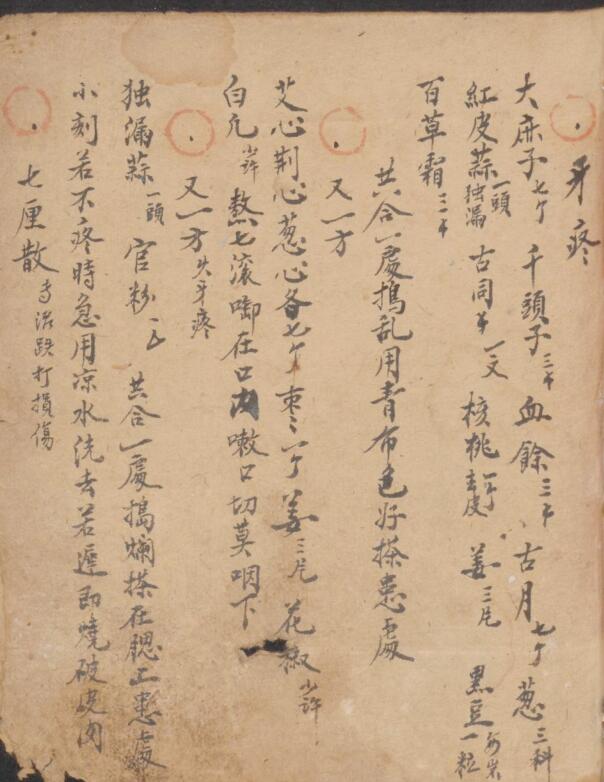 牙疼
大麻子七个 千頭子三个 血餘三个 古月七个 葱三科
紅皮蒜独漏一頭 古同一文 核桃一个去皮 姜三片 黑豆一粒
百草霜三个
共合一處搗乱用青布包好搽患處
又一方
艾心荆心葱心各七个 枣一个 姜三片 花椒少許
白凡少許 熬七滚啣在口内嗽口切莫咽下
又一方 火牙疼
独漏蒜一頭 官粉 共合一處搗爛搽在腮上患處
小刻若不疼時急用凉水洗去若遲即燒破皮肉
七厘散 专治跌打損傷